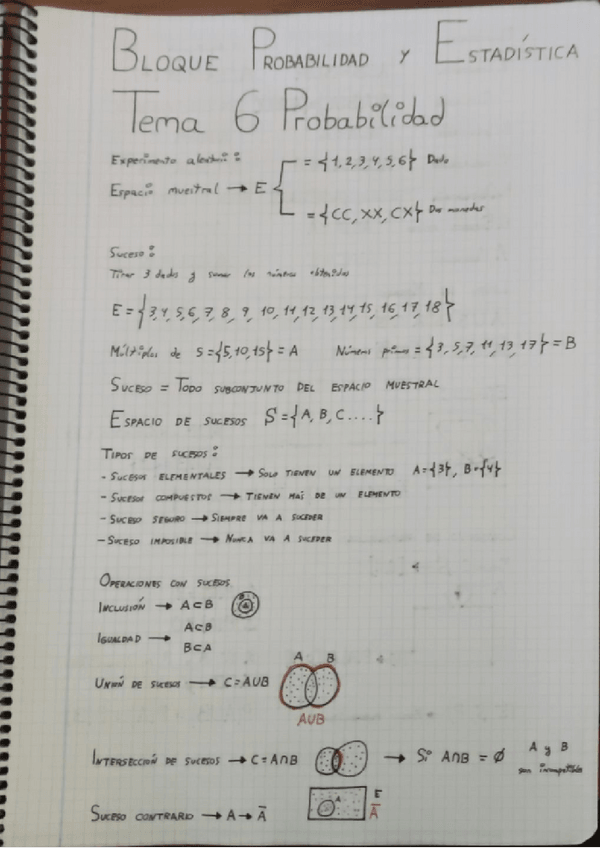 BLOQUE PROBABILIDAD Y ESTADÍSTICA
Tema 6 Probabilidad
Experimento aleatorio:
Espacio muestral → E
= {1, 2, 3, 4, 5, 6} Dado
= {CC, XX, CX} Dos monedas
Suceso:
Tirar 3 dados y sumar los números obtenidos
E = {3, 4, 5, 6, 7, 8, 9, 10, 11, 12, 13, 14, 15, 16, 17, 18}
Múltiplos de 5 = {5, 10, 15} = A Números primos = {3, 5, 7, 11, 13, 17} = B
SUCESO = TODO SUBCONJUNTO DEL ESPACIO MUESTRAL
ESPACIO DE SUCESOS S = {A, B, C ....}
TIPOS DE SUCESOS:
- SUCESOS ELEMENTALES → SOLO TIENEN UN ELEMENTO A = {3}, B = {4}
- SUCESOS COMPUESTOS → TIENEN MAS DE UN ELEMENTO
- SUCESO SEGURO → SIEMPRE VA A SUCEDER
- SUCESO IMPOSIBLE → NUNCA VA A SUCEDER
OPERACIONES CON SUCESOS
INCLUSIÓN → A⊂B A
IGUALDAD →
A⊂B
B⊂A
A B
UNIÓN DE SUCESOS → C = A∪B
A∪B
INTERSECCIÓN DE SUCESOS → C = A∩B → Si A∩B = Ø A y B
son incompatibles
SUCESO CONTRARIO → A → Ā A E
Ā